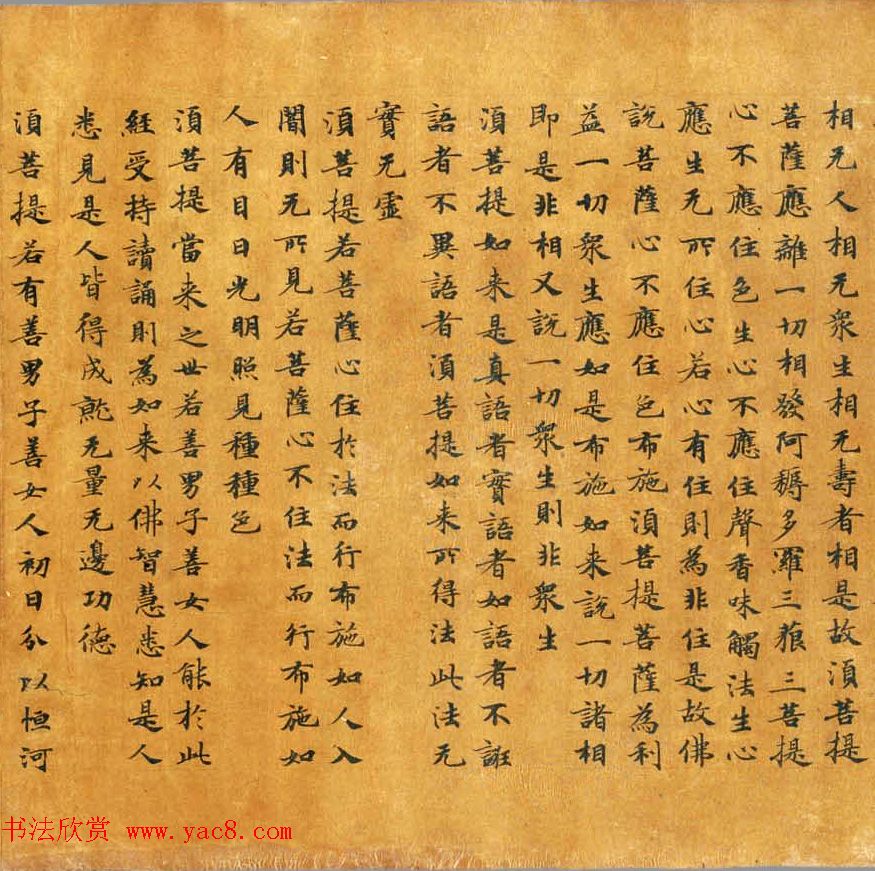 相无人相无衆生相无壽者相是故湏菩提
菩薩應離一切相發阿耨多羅三藐三菩提
心不應住色生心不應住聲香味觸法生心
應生无所住心若心有住則為非住是故佛
說菩薩心不應住色布施湏菩提菩薩為利
益一切衆生應如是布施如来說一切諸相
即是非相又說一切衆生則非衆生
湏菩提如来是真語者實語者如語者不誑
語者不異語者湏菩提如来所得法此法无
實无虛
湏菩提若菩薩心住於法而行布施如人入
闇則无所見若菩薩心不住法而行布施如
人有目日光明照見種種色
湏菩提當来之世若善男子善女人能於此
經受持讀誦則為如来以佛智慧悉知是人
悉見是人皆得成就无量无邊功德
湏菩提若有善男子善女人初日分以恒河
书法欣赏 www.yac8.com